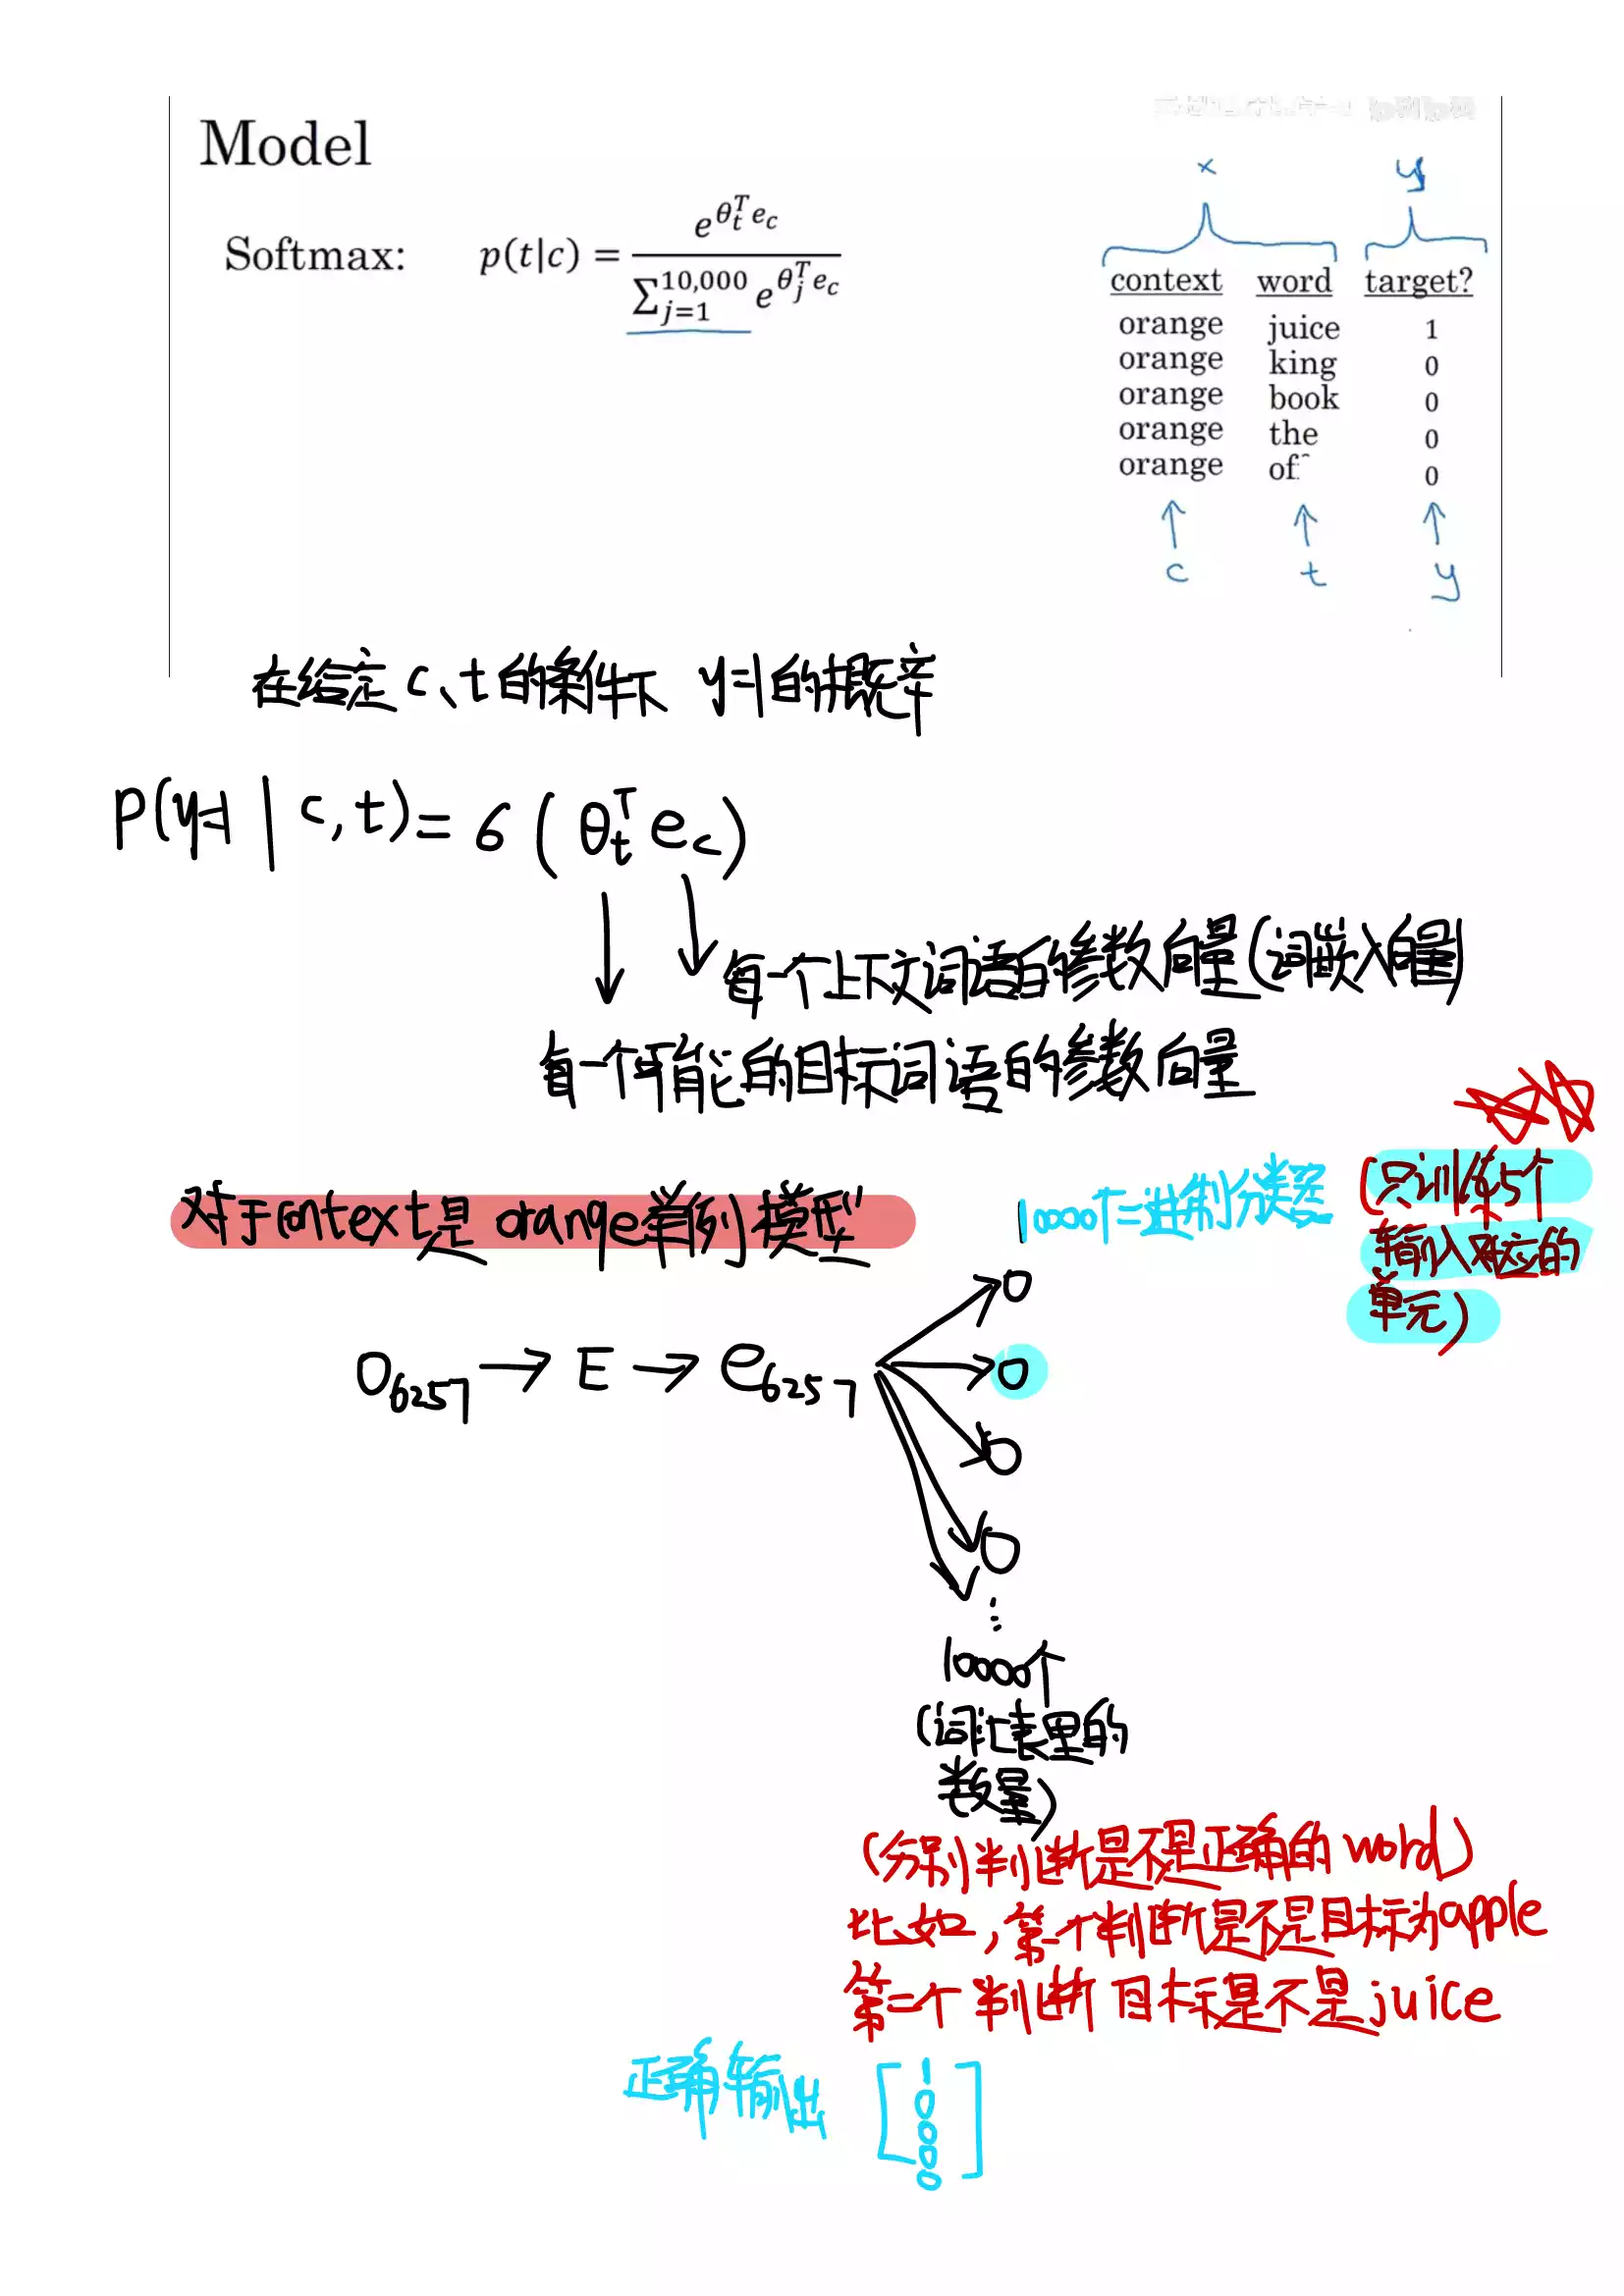 Model
Softmax: p(t|c) = e^{θ_t^T e_c} / ∑_{j=1}^{10,000} e^{θ_j^T e_c}
x y
context word target?
orange juice 1
orange king 0
orange book 0
orange the 0
orange of 0
c t y
在给定 c、t 的条件下 y=1的概率
P(y=1 | c,t) = 6 (θ_t^T e_c)
每一个上下文词语的参数向量(词嵌入向量)
每一个可能的目标词语的参数向量
对于context是 orange举例 模型
10000个二进制分类器
(只训练5个
输入对应的
单元)
O_{6257} → E → e_{6257}
10000个
(词汇表里的
数量)
(分别判断是不是正确的word)
比如,第一个判断是不是目标为apple
第二个 判断 目标是不是juice
正确输出 [1 0 0 0 0]